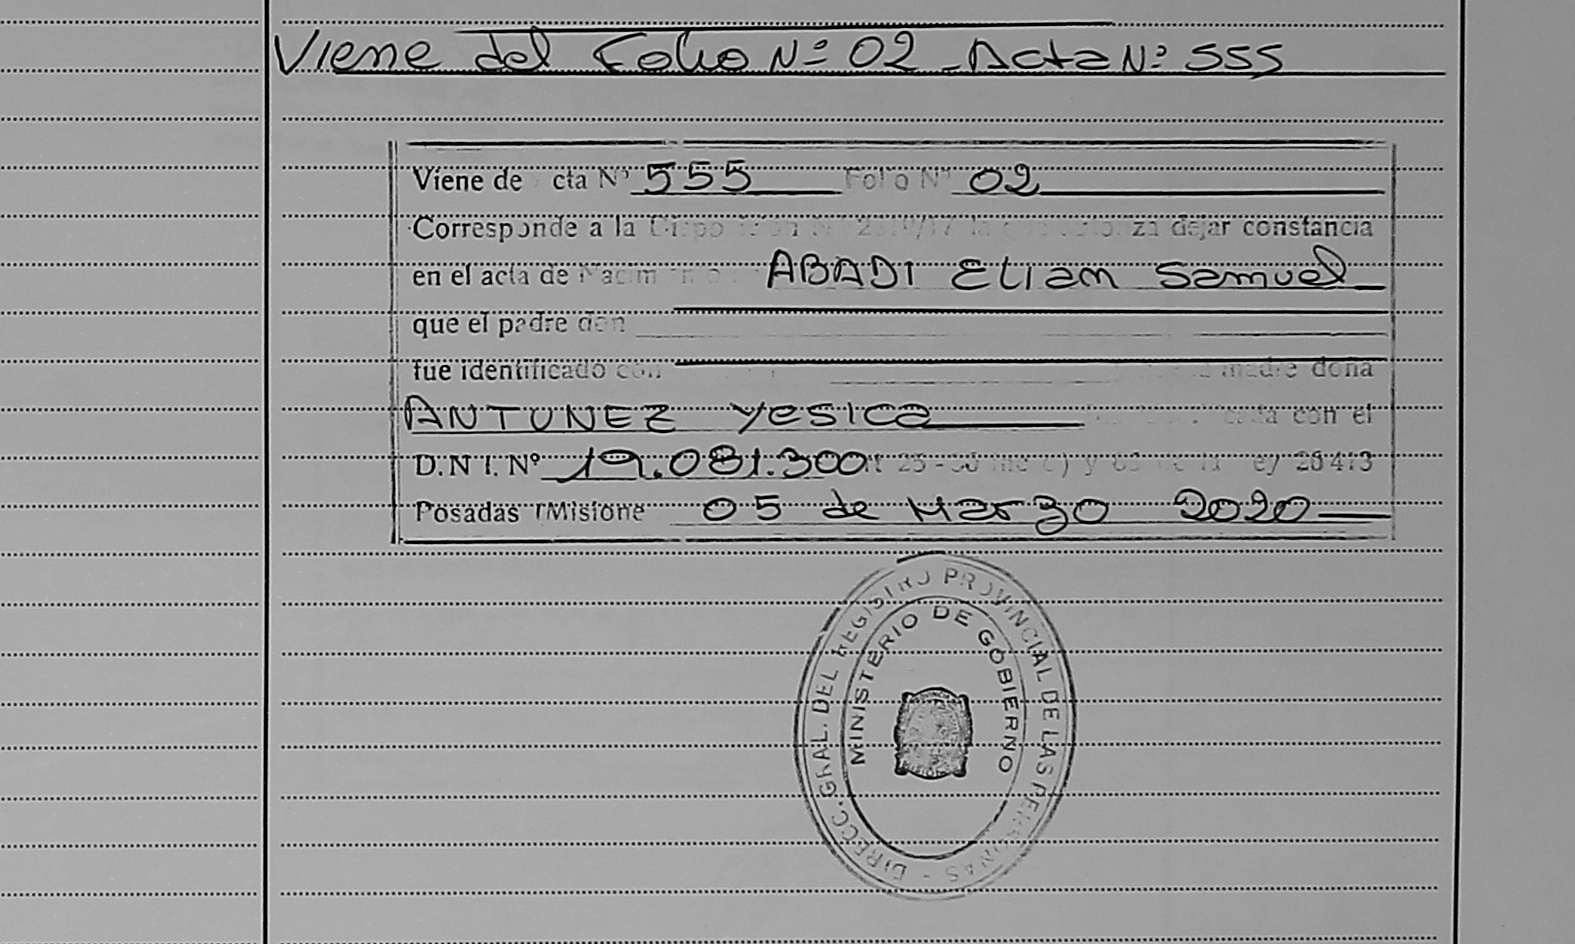 Viene del Folio Nº 02 - Acta Nº 555
Viene de cta Nº 555 Folio Nº 02
Corresponde a la dejar constancia
en el acta de ABADI Elian Samuel
que el padre don
fue identificado con madre doña
ANTUNEZ Yesica con el
D.N.I. Nº 19.081.300
Posadas (Misione 05 de Marzo 2020
DIRECC. GRAL. DEL REGISTRO PROVINCIAL DE LAS PERSONAS
MINISTERIO DE GOBIERNO